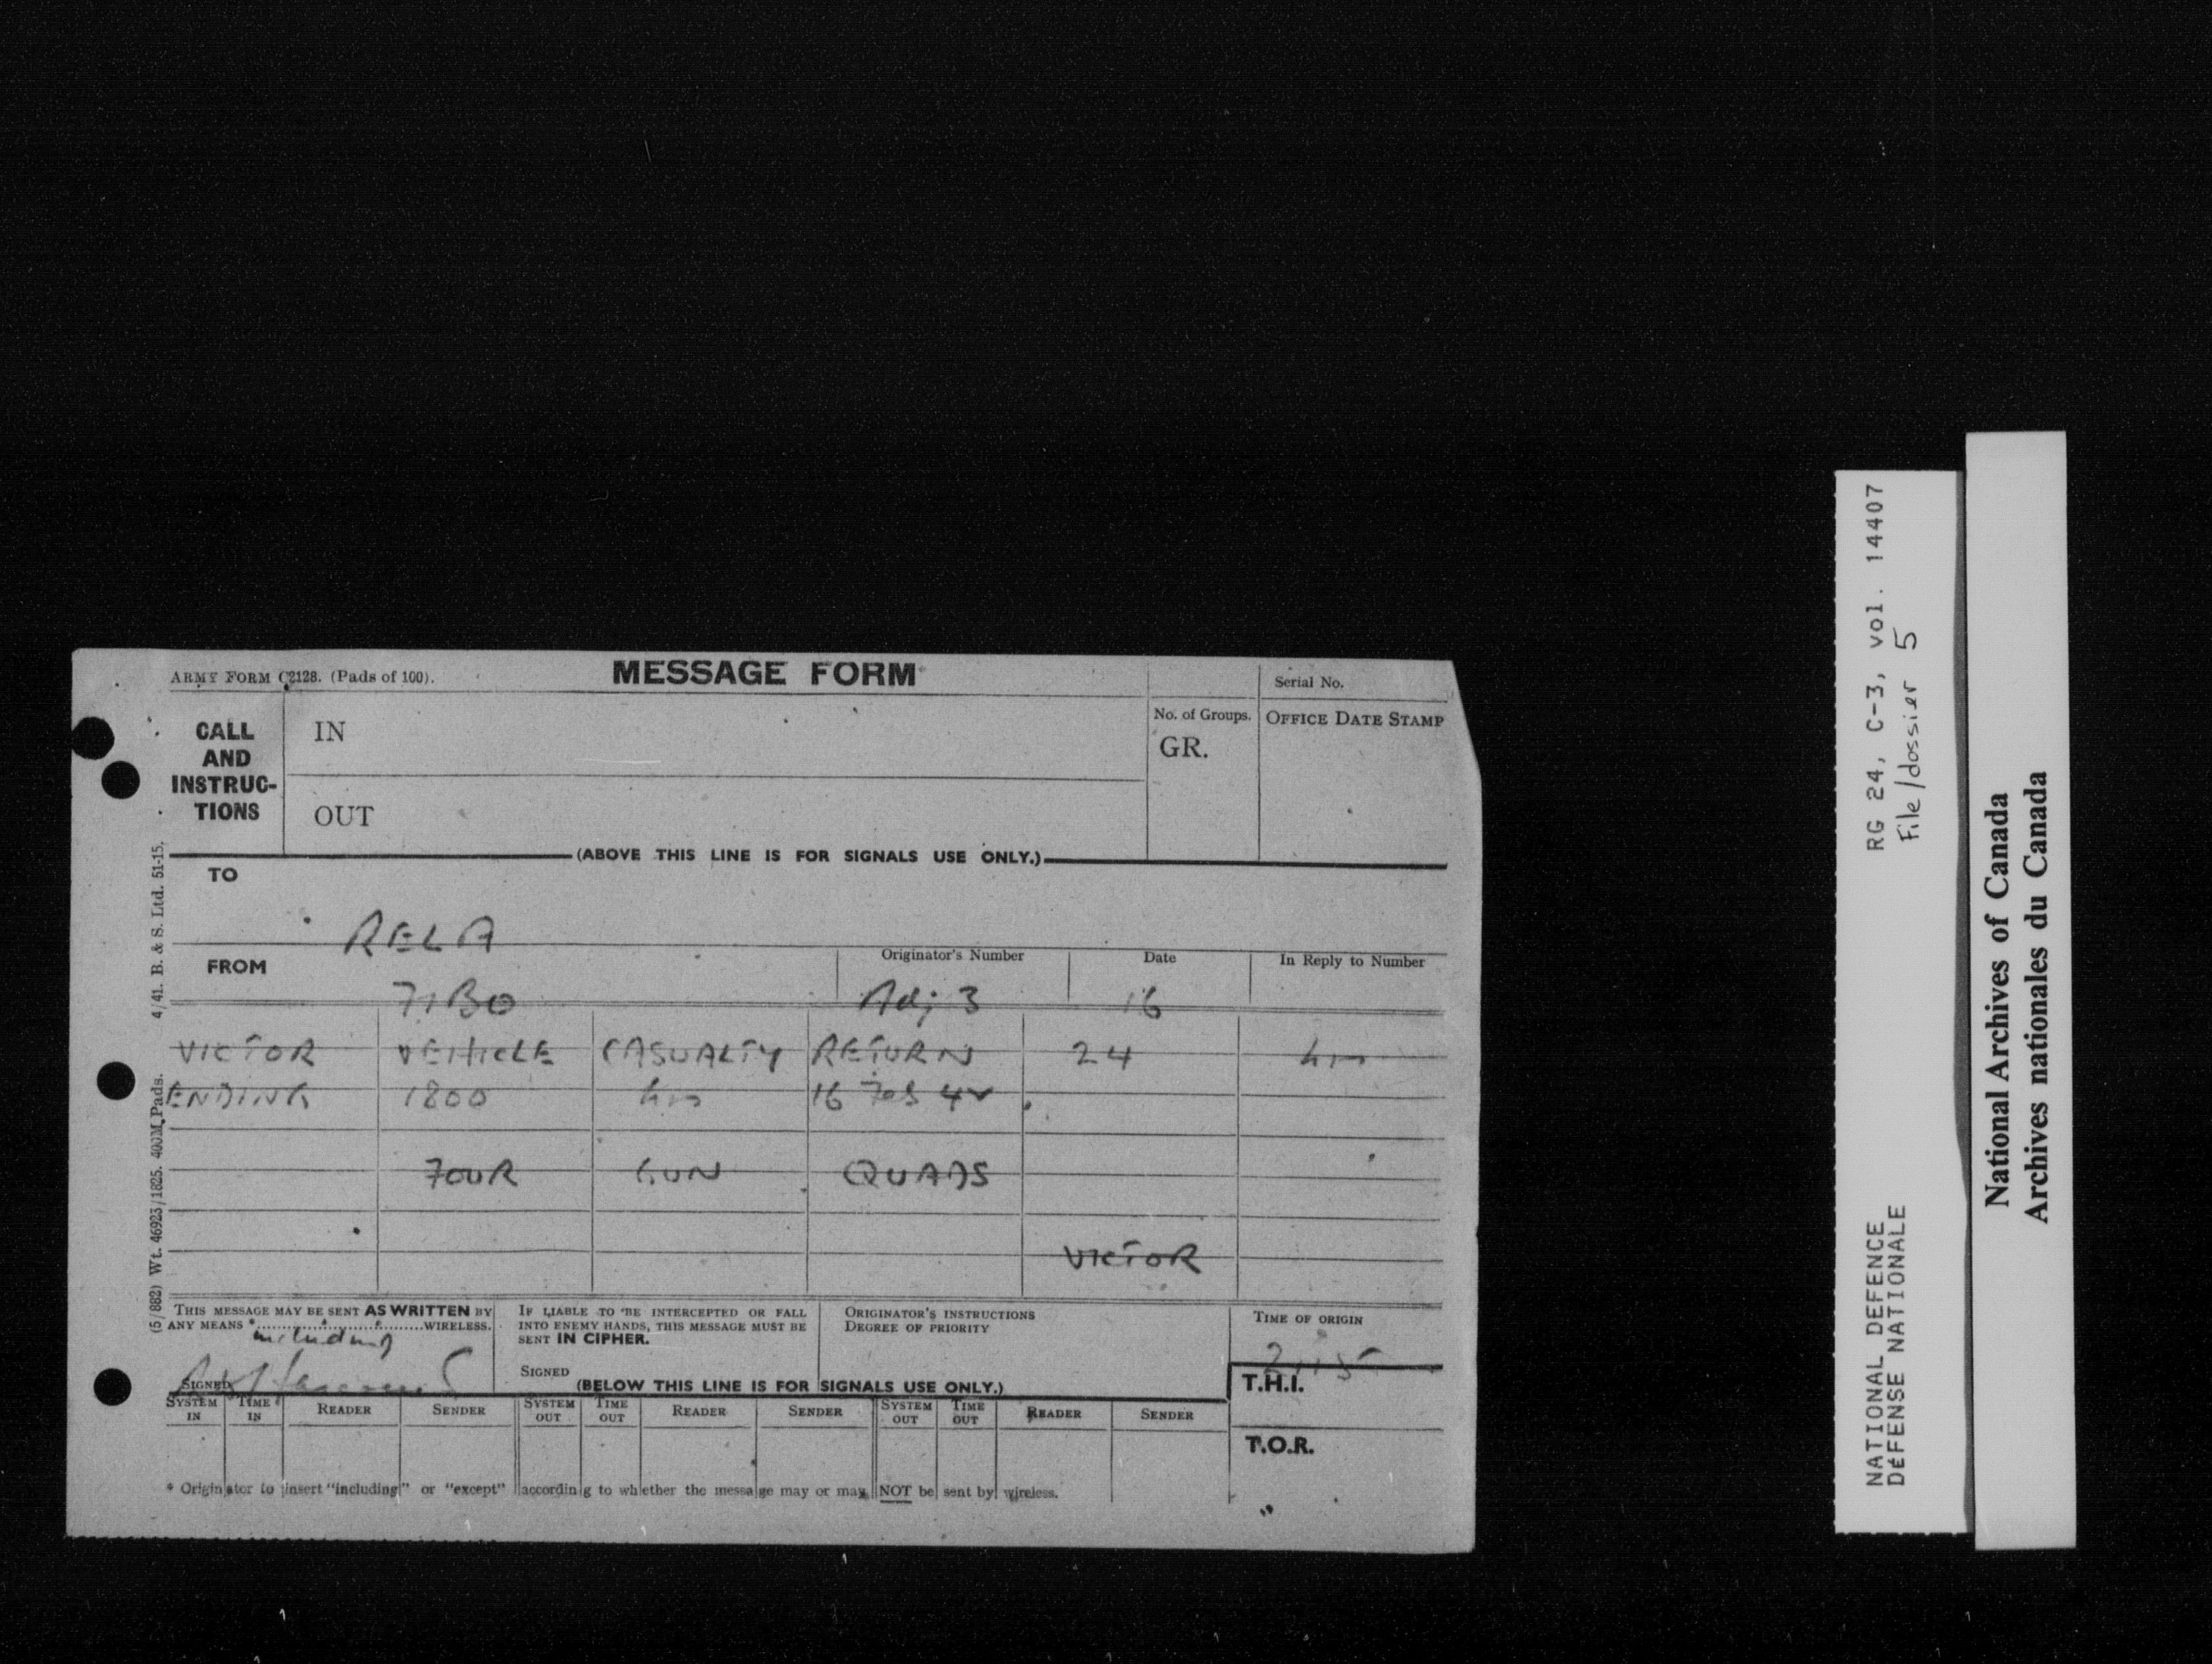 ARMY FORM C2128. (Pads of 100).
MESSAGE FORM
Serial No.
CALL AND INSTRUC-TIONS
IN
No. of Groups.
GR.
OFFICE DATE STAMP
OUT
(ABOVE THIS LINE IS FOR SIGNALS USE ONLY.)
TO
RELA
FROM
Originator's Number
Date
In Reply to Number
Adj 3
16
VICTOR VEHICLE CASUALTY RETURN 24 hrs
ENDING 1800 hrs 16 Feb 42.
FOUR GUN QUADS
VICTOR
THIS MESSAGE MAY BE SENT AS WRITTEN BY
ANY MEANS * WIRELESS.
including
SIGNED
IF LIABLE TO BE INTERCEPTED OR FALL
INTO ENEMY HANDS, THIS MESSAGE MUST BE
SENT IN CIPHER.
SIGNED
ORIGINATOR'S INSTRUCTIONS
DEGREE OF PRIORITY
TIME OF ORIGIN
(BELOW THIS LINE IS FOR SIGNALS USE ONLY.)
T.H.I.
SYSTEM IN TIME IN READER SENDER SYSTEM OUT TIME OUT READER SENDER SYSTEM OUT TIME OUT READER SENDER
T.O.R.
* Originator to insert "including" or "except" according to whether the message may or may NOT be sent by wireless.
(5/882) Wt. 46923/1825. 400M Pads. 4/41. B. & S. Ltd. 51-15.
NATIONAL DEFENCE RG 24, C-3, vol. 14407
DÉFENSE NATIONALE File/dossier 5
National Archives of Canada
Archives nationales du Canada